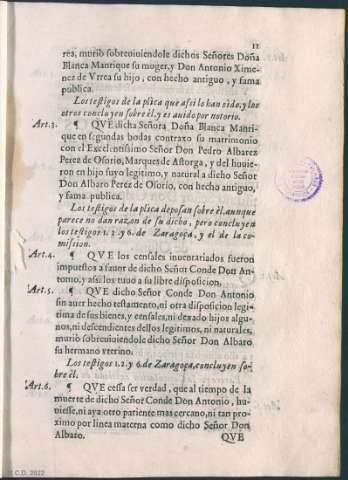 11
rea, murio sobreuiuiendole dichos Señores Doña
Blanca Manrique su moger, y Don Antonio Xime-
nez de Vrrea su hijo, con hecho antiguo, y fama
publica.
Los testigos de la plica que assi lo han oido, y los
otros concluyen sobre èl, y es auido por notorio.
Art.3. ¶ QVE dicha Señora Doña Blanca Manri-
que en segundas bodas contraxo su matrimonio
con el Excelentissimo Señor Don Pedro Albarez
Perez de Osorio, Marques de Astorga, y del huuie-
ron en hijo suyo legitimo, y natural a dicho Señor
Don Albaro Perez de Osorio, con hecho antiguo,
y fama publica.
Los testigos de la plica deposan sobre èl, aunque
parece no dan razon de su dicho, pero concluyen
los testigos 1. 2. y 6. de Zaragoça, y el de la co-
mission.
Art.4. ¶ QVE los censales inuentariados fueron
impuestos a fauor de dicho Señor Conde Don An-
tonio, y assi los tuuo a su libre disposicion.
Art.5. ¶ QVE dicho Señor Conde Don Antonio
sin auer hecho testamento, ni otra disposicion legi-
tima de sus bienes, y censales, ni dexado hijos algu-
nos, ni descendientes dellos legitimos, ni naturales,
murio sobreuiuiendole dicho Señor Don Albaro
su hermano vterino.
Los testigos 1. 2. y 6. de Zaragoça, concluyen so-
bre èl.
Art.6. ¶ QVE cessa ser verdad, que al tiempo de la
muerte de dicho Señor Conde Don Antonio, hu-
uiesse, ni aya otro pariente mas cercano, ni tan pro-
ximo por linea materna como dicho Señor Don
Albaro.
QVE
C.D. 2022